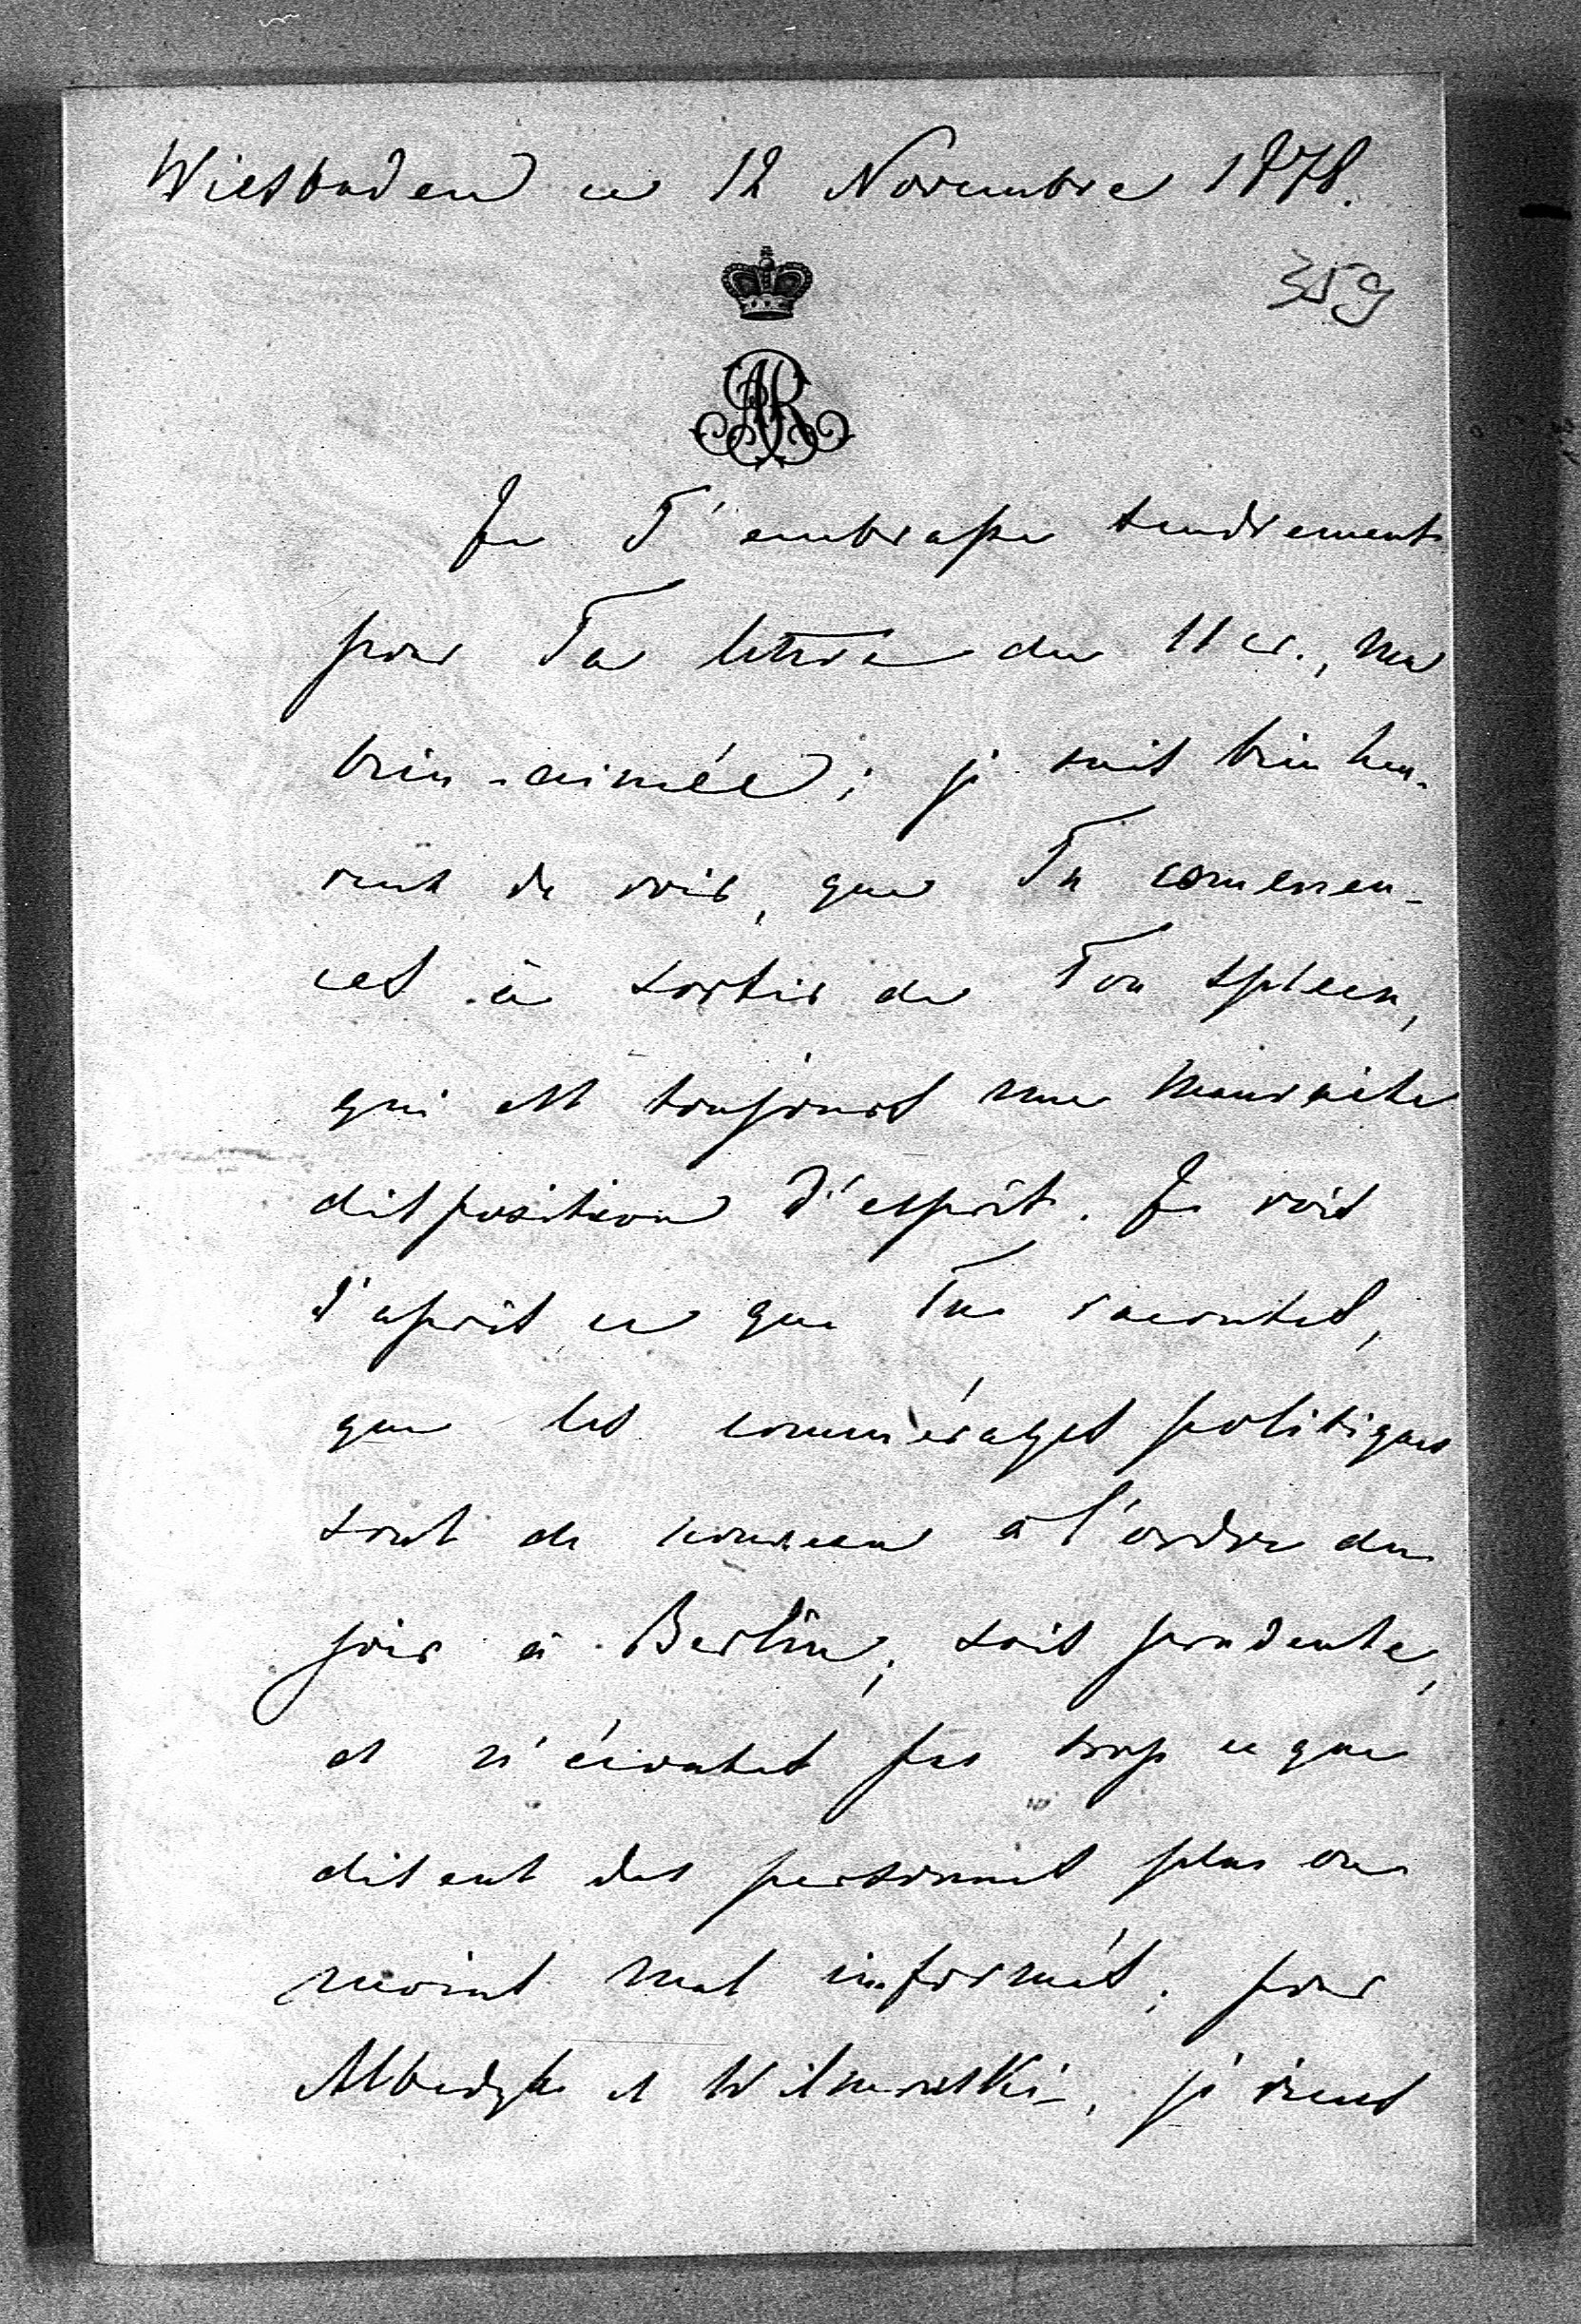 Wiesbaden ce 12 Novembre 1878.
359
AR
Je T'embrasse tendrement
pour Ta lettre du 11 cr., ma
bien-aimée; je suis bien heu-
reux de voir, que Tu commen-
ces à sortir de Ton spleen,
qui est toujours une mauvaise
disposition d'esprit. Je vois
d'après ce que Tu racontes,
que les commérages politiques
sont de nouveau à l'ordre du
jour à Berlin; sois prudente,
et n'écoutes pas trop ce que
disent des personnes plus ou
moins mal informés; pour
Albedyll et Wilmowski, je viens